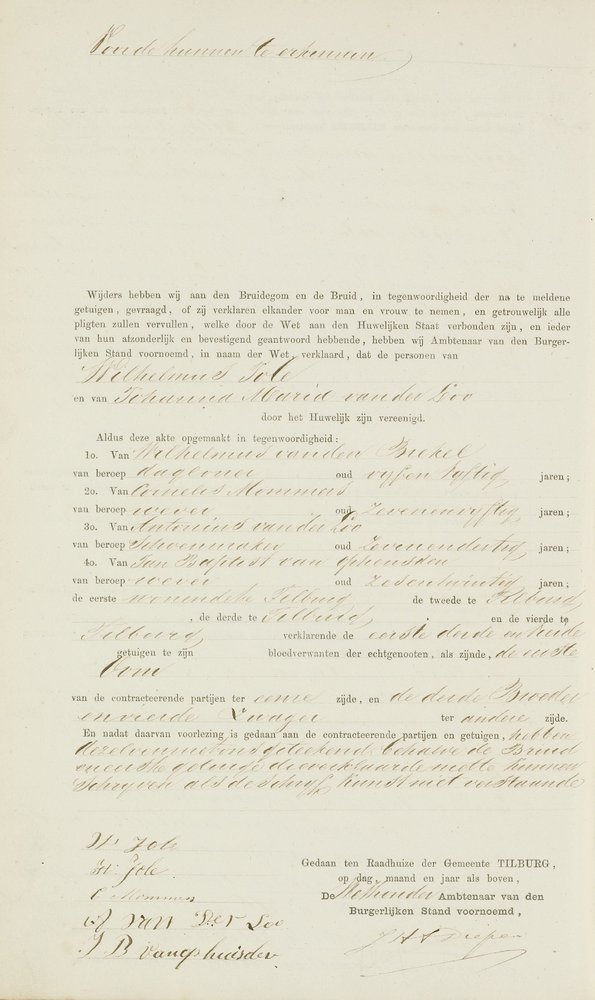 Voor de hunnen te erkennen
Wijders hebben wij aan den Bruidegom en de Bruid, in tegenwoordigheid der na te meldene
getuigen, gevraagd, of zij verklaren elkander voor man en vrouw te nemen, en getrouwelijk alle
pligten zullen vervullen, welke door de Wet aan den Huwelijken Staat verbonden zijn, en ieder
van hun afzonderlijk en bevestigend geantwoord hebbende, hebben wij Ambtenaar van den Burger-
lijken Stand voornoemd, in naam der Wet, verklaard, dat de personen van
Wilhelmus Jole
en van Johanna Maria van der Loo
door het Huwelijk zijn vereenigd.
Aldus deze akte opgemaakt in tegenwoordigheid:
1o. Van Wilhelmus van den Brekel
van beroep dagloner oud vyf en vyftig jaren;
2o. Van Cornelis Mommers
van beroep wever oud zevenenvyftig jaren;
3o. Van Antonius van der Loo
van beroep Schoenmaker oud Zevenendertig jaren;
4o. Van Jan Baptist van Gpheusden
van beroep wever oud zesentwintig jaren;
de eerste wonende te Tilburg de tweede te Tilburg
, de derde te Tilburg en de vierde te
Tilburg verklarende de eerste derde en vierde
getuigen te zijn bloedverwanten der echtgenooten, als zijnde, de eerste
Oom
van de contracteerende partijen ter eenre zijde, en de derde Broeder
en vierde Zwager ter andere zijde.
En nadat daarvan voorlezing is gedaan aan de contracteerende partijen en getuigen, hebben
dezelven met ons geteekend, behalve de Bruid
en eerste getuige die verklaarde niet te kunnen
Schryven als de Schryf kunst niet verstaande
W Jole
H: Jole
C Mommers
A van Der Loo
J B Vangpheusden
Gedaan ten Raadhuize der Gemeente TILBURG,
op dag, maand en jaar als boven,
De Wethouder Ambtenaar van den
Burgerlijken Stand voornoemd,
Diepen